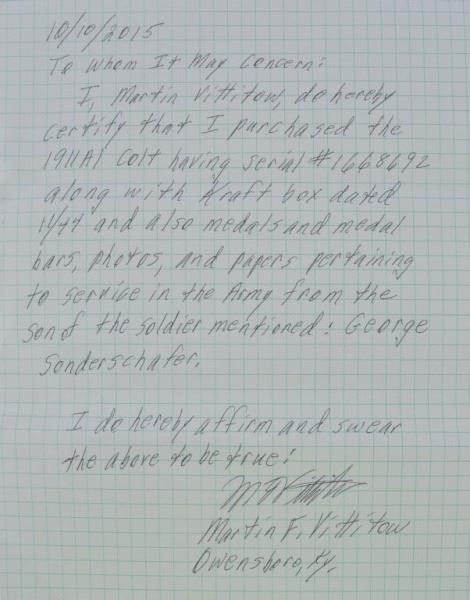 10/10/2015
To Whom It May Concern:
I, Martin Vittitow, do hereby
certify that I purchased the
1911A1 Colt having serial #1668692
along with Kraft box dated
1944 and also medals and medal
bars, photos, and papers pertaining
to service in the Army from the
son of the soldier mentioned: George
Sonderschafer.
I do hereby affirm and swear
the above to be true:
Martin F. Vittitow
Owensboro, Ky.